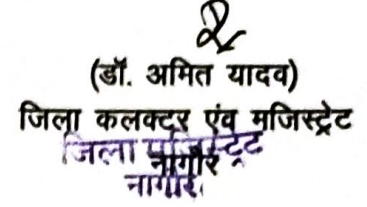 (डॉ. अमित यादव)
जिला कलक्टर एंव मजिस्ट्रेट
जिला मजिस्ट्रेट
नागौर
नागौर